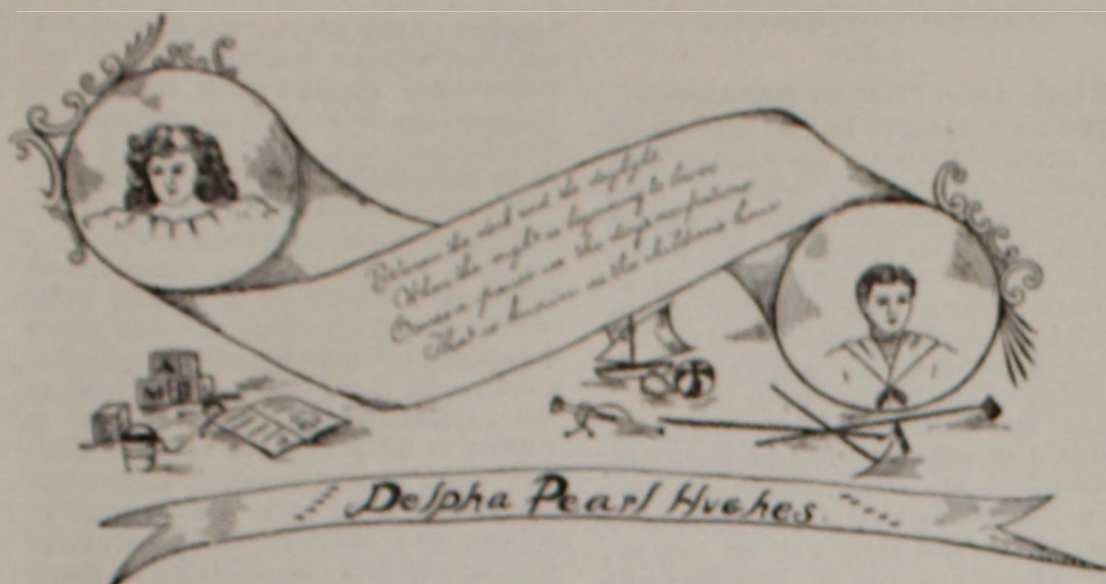 Between the dark and the daylight,
When the night is beginning to lower
Comes a pause in the day's occupations
That is known as the children's hour
A
M B
Delpha Pearl Hughes.